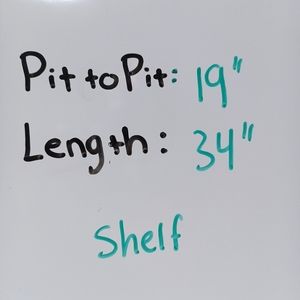 Pit to Pit: 19"
Length: 34"
Shelf